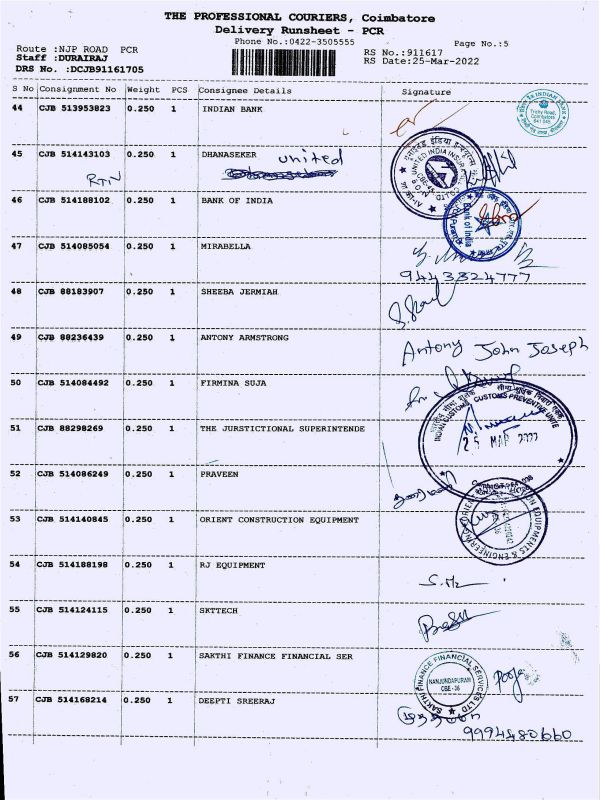 THE PROFESSIONAL COURIERS, Coimbatore
Delivery Runsheet - PCR
Phone No.:0422-3505555
Page No.:5
Route :NJP ROAD PCR
RS No.:911617
Staff :DURAIRAJ
RS Date:25-Mar-2022
DRS No. :DCJB91161705
S No Consignment No Weight PCS Consignee Details Signature
44 CJB 513953823 0.250 1 INDIAN BANK
INDIAN BANK
Trichy Road,
Coimbatore
641 045
45 CJB 514143103 0.250 1 DHANASEKER united
RTN
UNITED INDIA INSUR
46 CJB 514188102 0.250 1 BANK OF INDIA
Bank of India
47 CJB 514085054 0.250 1 MIRABELLA
9443324777
48 CJB 88183907 0.250 1 SHEEBA JERMIAH
49 CJB 88236439 0.250 1 ANTONY ARMSTRONG
Antony John Joseph
50 CJB 514084492 0.250 1 FIRMINA SUJA
51 CJB 88298269 0.250 1 THE JURSTICTIONAL SUPERINTENDE
INDIAN CUSTOMS CUSTOMS PREVENTIVE UNIT
25 MAR 2022
52 CJB 514086249 0.250 1 PRAVEEN
53 CJB 514140845 0.250 1 ORIENT CONSTRUCTION EQUIPMENT
EQUIPMENTS & ENGINEERING
54 CJB 514188198 0.250 1 RJ EQUIPMENT
55 CJB 514124115 0.250 1 SKTTECH
56 CJB 514129820 0.250 1 SAKTHI FINANCE FINANCIAL SER
SAKTHI FINANCE FINANCIAL SERVICES LTD
NANJUNDAPURAM
CBE - 36
Pooja
57 CJB 514168214 0.250 1 DEEPTI SREERAJ
9994480660